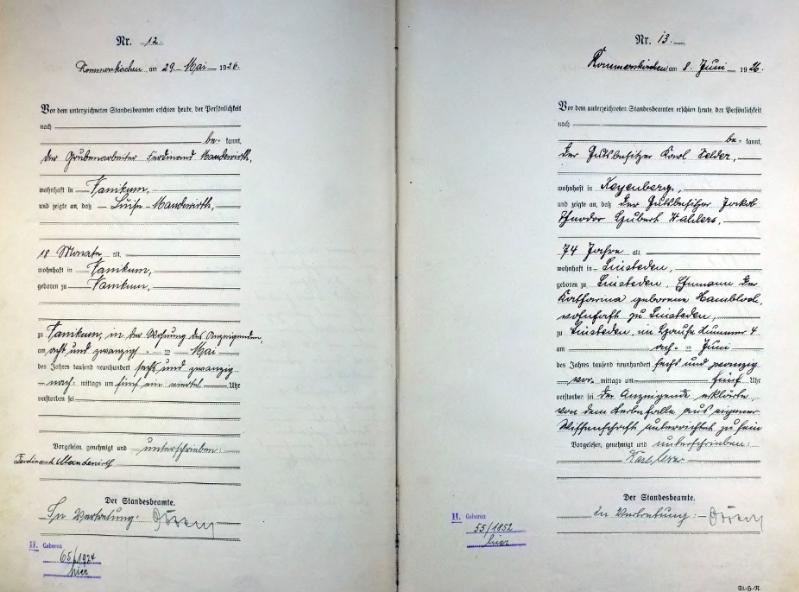 Nr. 12
Rommerskirchen am 29. Mai 1926.
Vor dem unterzeichneten Standesbeamten erschien heute, der Persönlichkeit
nach
be- kannt,
der Grubenarbeiter Ferdinand Manderwirth,
wohnhaft in Vanikum,
und zeigte an, daß Luise Manderwirth,
18 Monate alt,
wohnhaft in Vanikum,
geboren zu Vanikum,
zu Vanikum, in der Wohnung des Anzeigenden
am acht und zwanzigsten Mai
des Jahres tausend neunhundert sechs und zwanzig
nach- mittags um fünf ein viertel Uhr
verstorben sei
Vorgelesen, genehmigt und unterschrieben:
Ferdinand Manderwirth
Der Standesbeamte.
In Vertretung:
H. Geboren
65/1924
hier
Nr. 13
Rommerskirchen am 8. Juni 1926.
Vor dem unterzeichneten Standesbeamten erschien heute, der Persönlichkeit
nach
be- kannt,
der Gutsbesitzer Karl
wohnhaft in Keyenberg,
und zeigte an, daß der Gutsbesitzer Jakob
Theodor Hubert
74 Jahre alt,
wohnhaft in Sinsteden,
geboren zu Sinsteden, Ehemann der
Katharina geborene
wohnhaft zu Sinsteden,
zu Sinsteden, im Hause Nummer 4
am Juni
des Jahres tausend neunhundert sechs und zwanzig
vor- mittags um fünf Uhr
verstorben sei. Der Anzeigende erklärte,
von dem Sterbefalle aus eigener
Wissenschaft unterrichtet zu sein
Vorgelesen, genehmigt und unterschrieben:
Karl
Der Standesbeamte.
In Vertretung:
H. Geboren
55/1852
hier